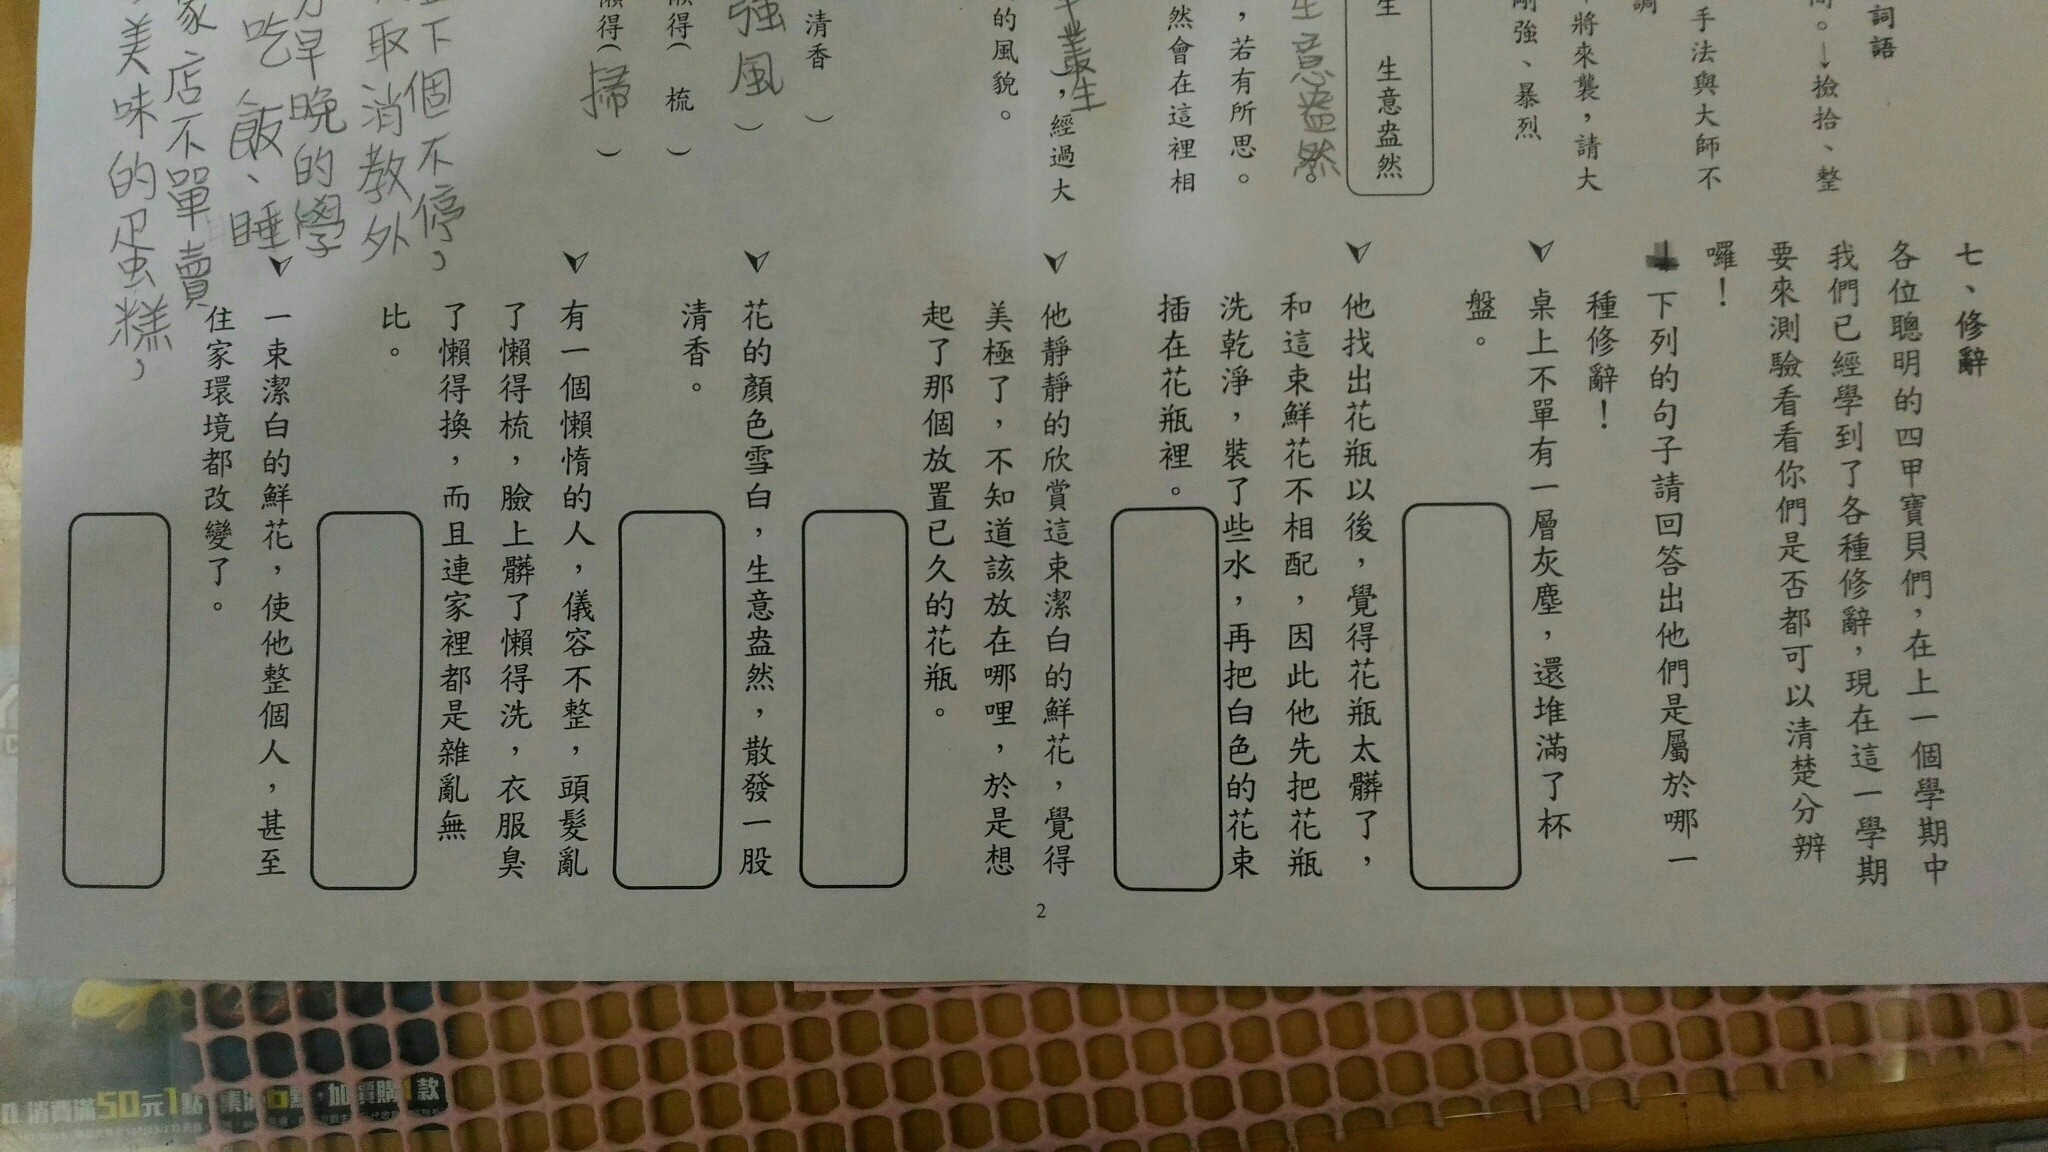 詞語
間。→撿拾、整
手法與大師不
調
將來襲，請大
剛強、暴烈
生　生意盎然
生意盎然。
，若有所思。
然會在這裡相
叢生），經過大
的風貌。
清香　）
強風　）
懶得（　梳　）
懶得（掃　）
下個不停，
取消教外
早晚的學
吃飯、睡
家店不單賣
美味的蛋糕，
七、修辭
各位聰明的四甲寶貝們，在上一個學期中
我們已經學到了各種修辭，現在這一學期
要來測驗看看你們是否都可以清楚分辨
囉！
下列的句子請回答出他們是屬於哪一
種修辭！
桌上不單有一層灰塵，還堆滿了杯
盤。
他找出花瓶以後，覺得花瓶太髒了，
和這束鮮花不相配，因此他先把花瓶
洗乾淨，裝了些水，再把白色的花束
插在花瓶裡。
他靜靜的欣賞這束潔白的鮮花，覺得
美極了，不知道該放在哪哩，於是想
起了那個放置已久的花瓶。
花的顏色雪白，生意盎然，散發一股
清香。
有一個懶惰的人，儀容不整，頭髮亂
了懶得梳，臉上髒了懶得洗，衣服臭
了懶得換，而且連家裡都是雜亂無
比。
一束潔白的鮮花，使他整個人，甚至
住家環境都改變了。
2
消費滿50元1點 集滿6點，加價購1款